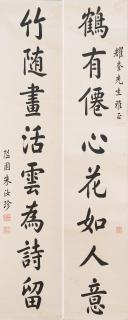 鶴有僊心花如人意
耀奎先生雅正
竹随畫活雲為詩留
朱汝珍